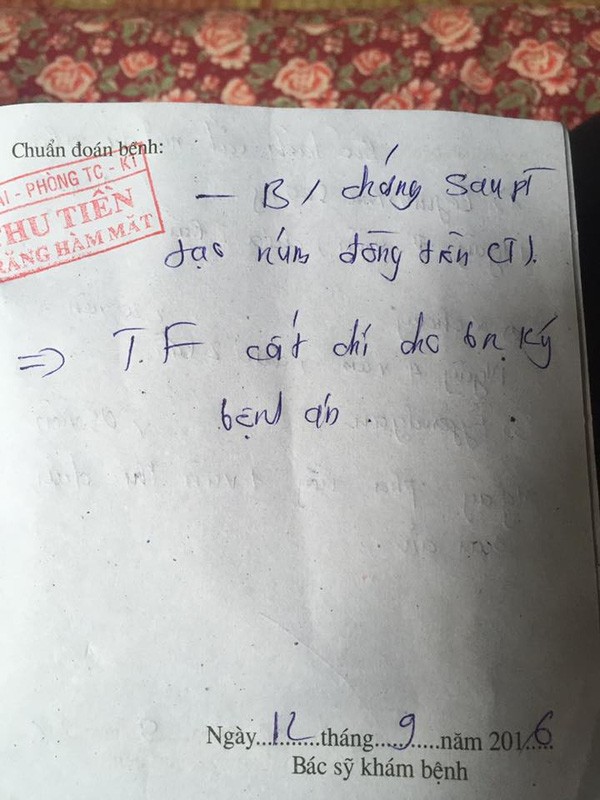 Chuẩn đoán bệnh:
AI - PHÒNG TC - KT
THU TIỀN
RĂNG HÀM MẶT
- B/ chứng sau pt
tạo núm đồng tiền (T).
=> T.F cắt chỉ cho bn. Ký
bệnh án
Ngày...12...tháng...9...năm 2016...
Bác sỹ khám bệnh